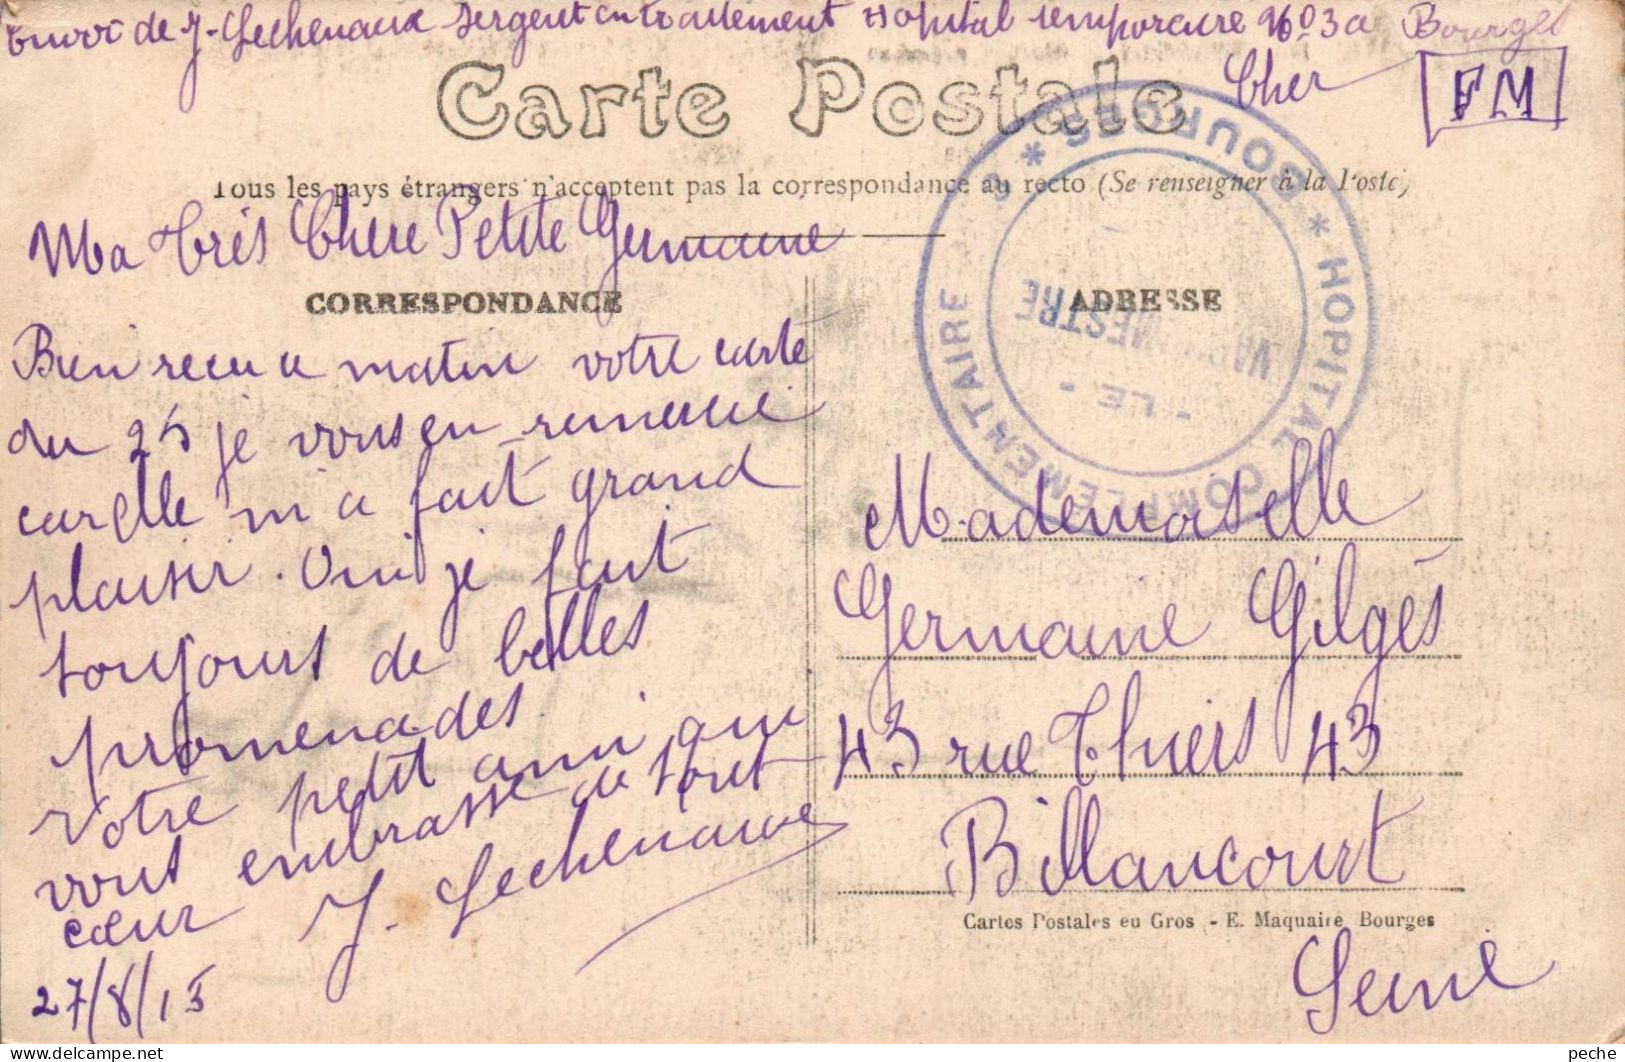 Envoi de J. Lechenaux sergent en traitement Hopital temporaire No 3 a Bourges
Cher
FM
Carte Postale
Tous les pays étrangers n'acceptent pas la correspondance au recto (Se renseigner à la Poste)
HOPITAL COMPLEMENTAIRE 3 * BOURGES *
- LE -
VAGUEMESTRE
CORRESPONDANCE
ADRESSE
Ma très Chere Petite Germaine
Bien recu ce matin votre carte
du 25 je vous en remercie
car elle m'a fait grand
plaisir. Oui je fait
toujours de belles
promenades.
Votre petit ami qui
vous embrasse de tout
cœur J. Lechenaux
27/8/15
Mademoiselle
Germaine Gilgès
43 rue Thiers 43
Billancourt
Cartes Postales en Gros - E. Maquaire, Bourges
Seine
peche